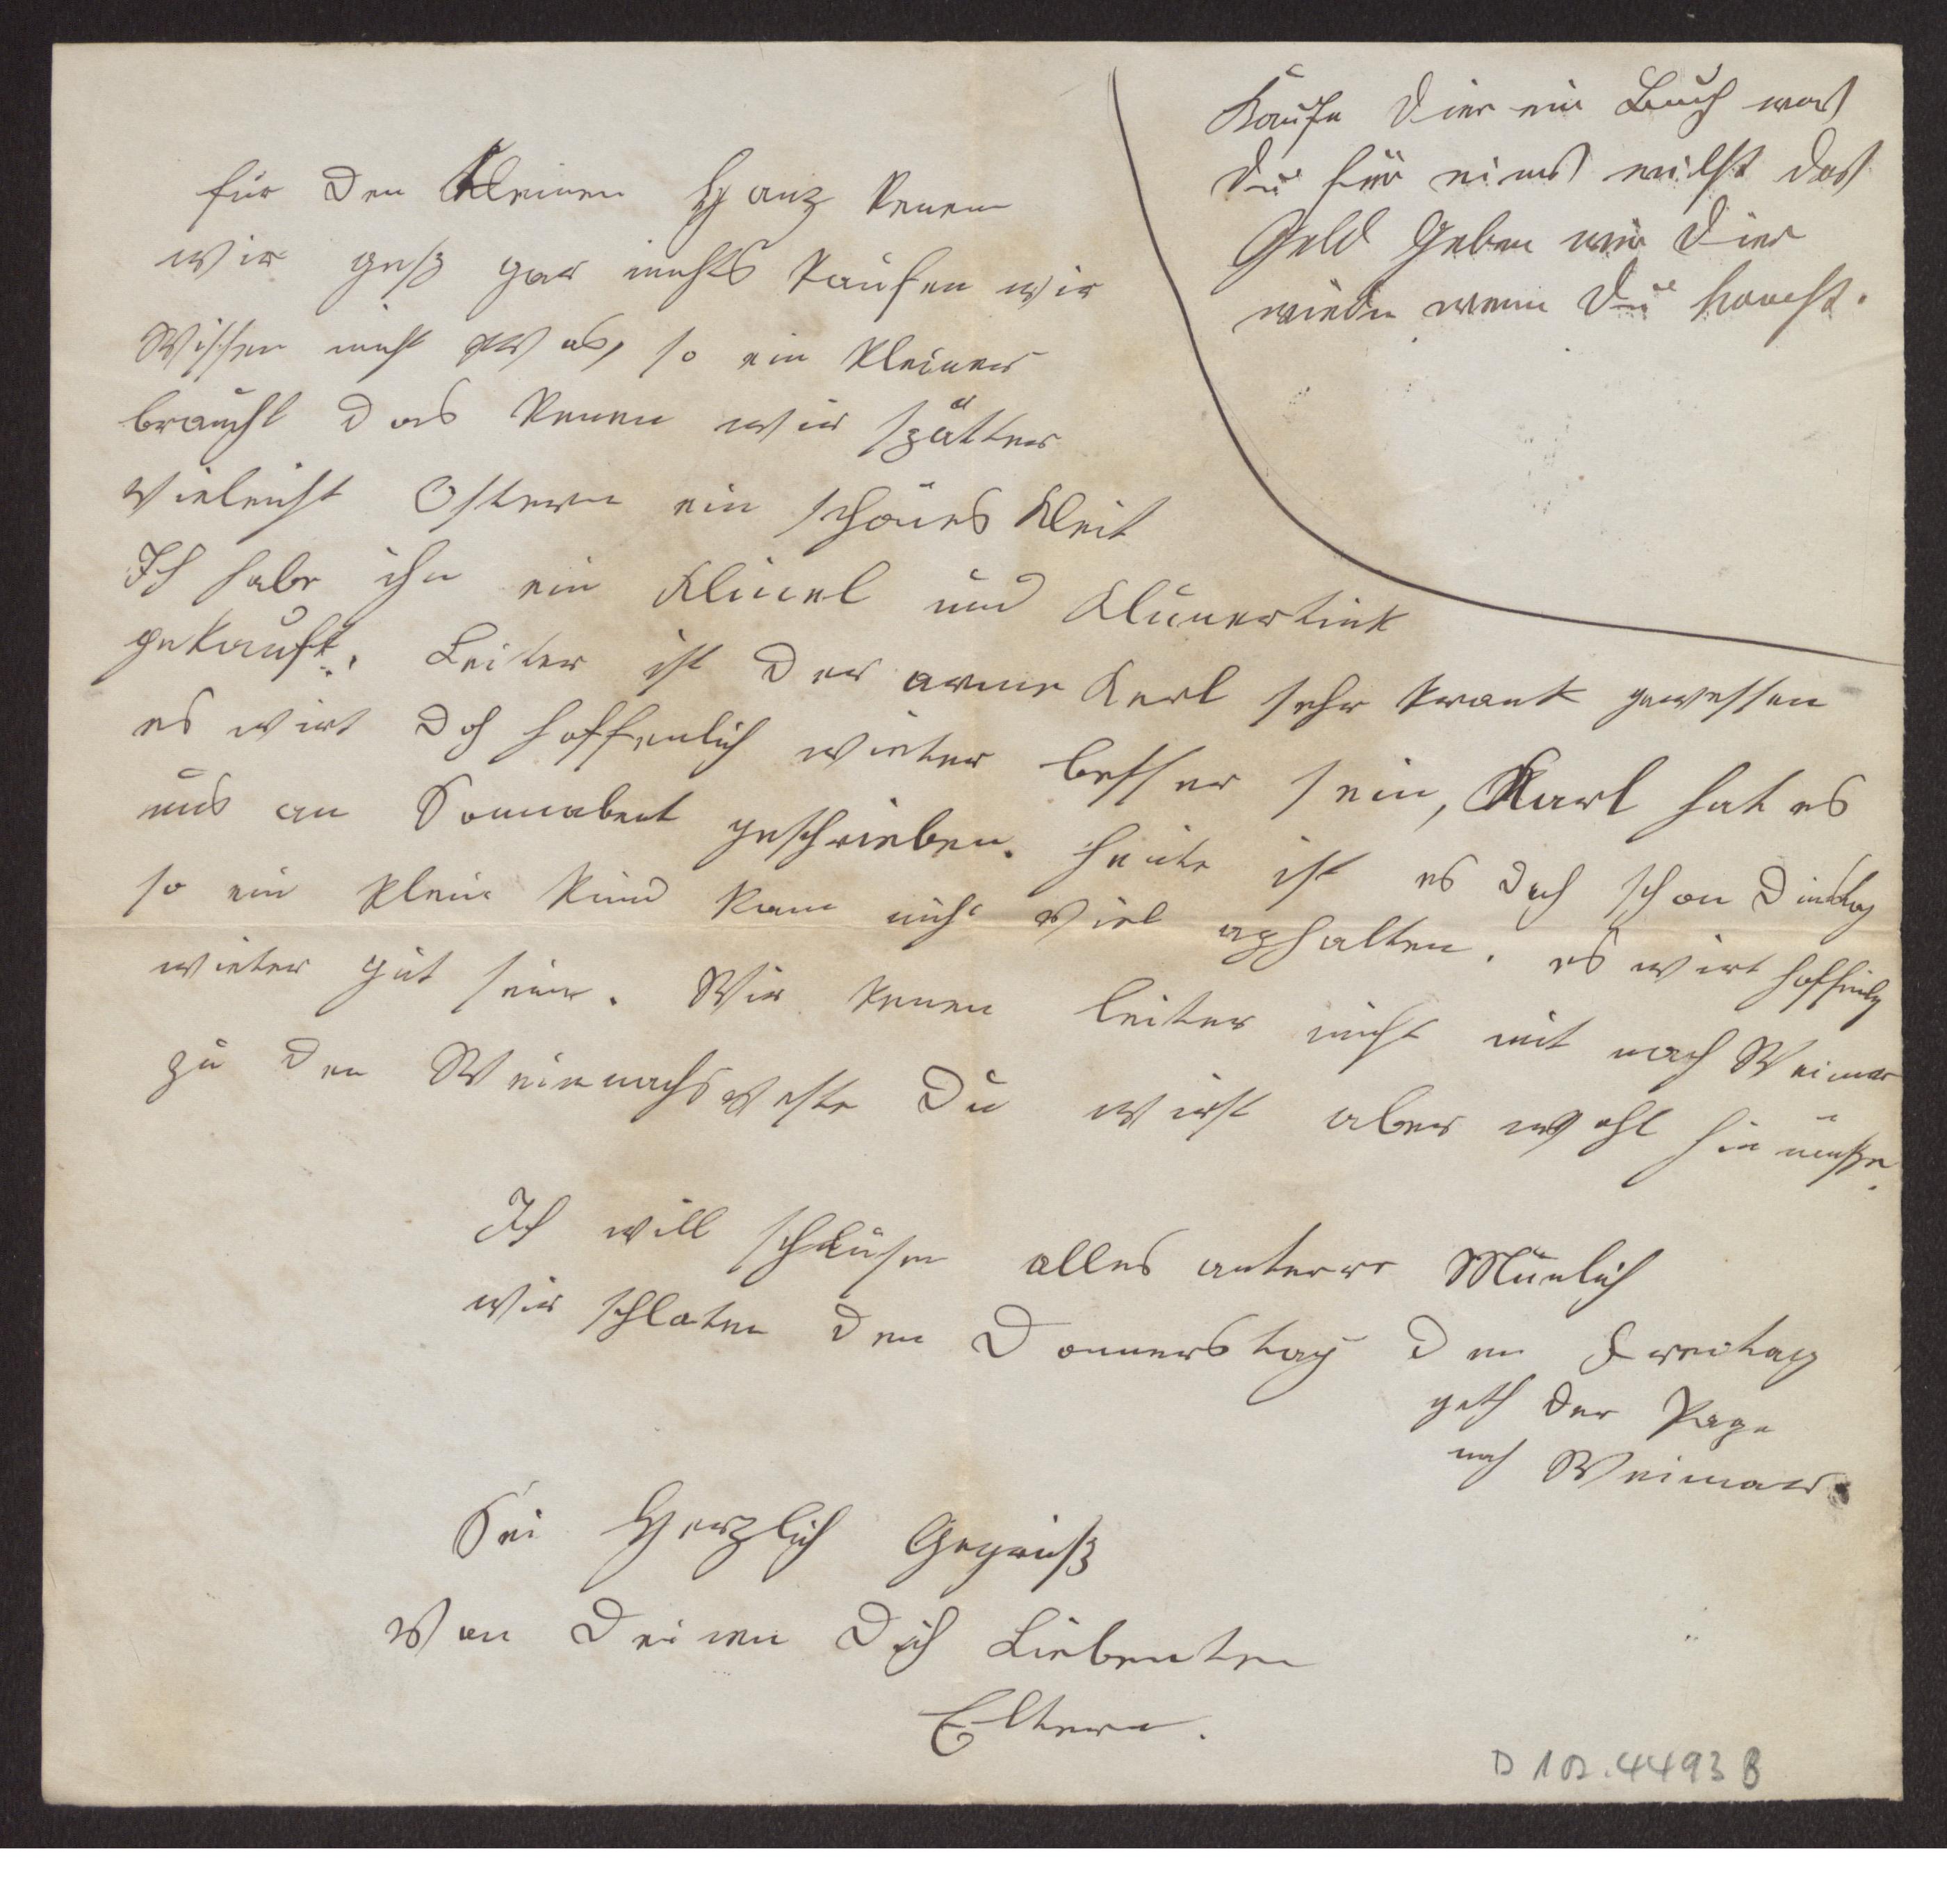 Kaufe Dier ein Buch was
Du für eins wilst das
Geld Geben wir Dier
wieder wenn Du komst.
für den Kleinen Hanz kenen
wir jetz gar nichts kaufen wir
Wissen nicht was, so ein kleiner
braucht das kenen wir spätter
vieleicht Ostern ein schönes Kleit
Ich habe ihn ein und
gekauft. Leiter ist der arme Kerl sehr krank gewessen
es wirt doch hoffenlich wieter besser sein, Karl hat es
uns an Sonnabent geschrieben. heute ist es doch schon Dinstag
so ein klein kind kann nicht viel aphalten. es wirt hoffenlig
wieter gut sein. Wir kenen leiter nicht mit nach Weimar
zu den Weinnachsveste Du wirst aber wohl hin müssen.
Ich will schlüsen alles antere Münlich
wir schlaten den Donnerstag den Freitag
geth der Papa
nach Weimar.
Sei Herzlich Gegrüß
von Deinen Dich Liebenten
Eltern.
D 102.4493 B